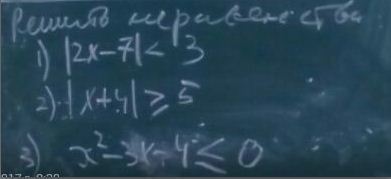 Решить неравенства
1) |2x-7| < 3
2) |x+4| ≥ 5
3) x²-3x-4 ≤ 0